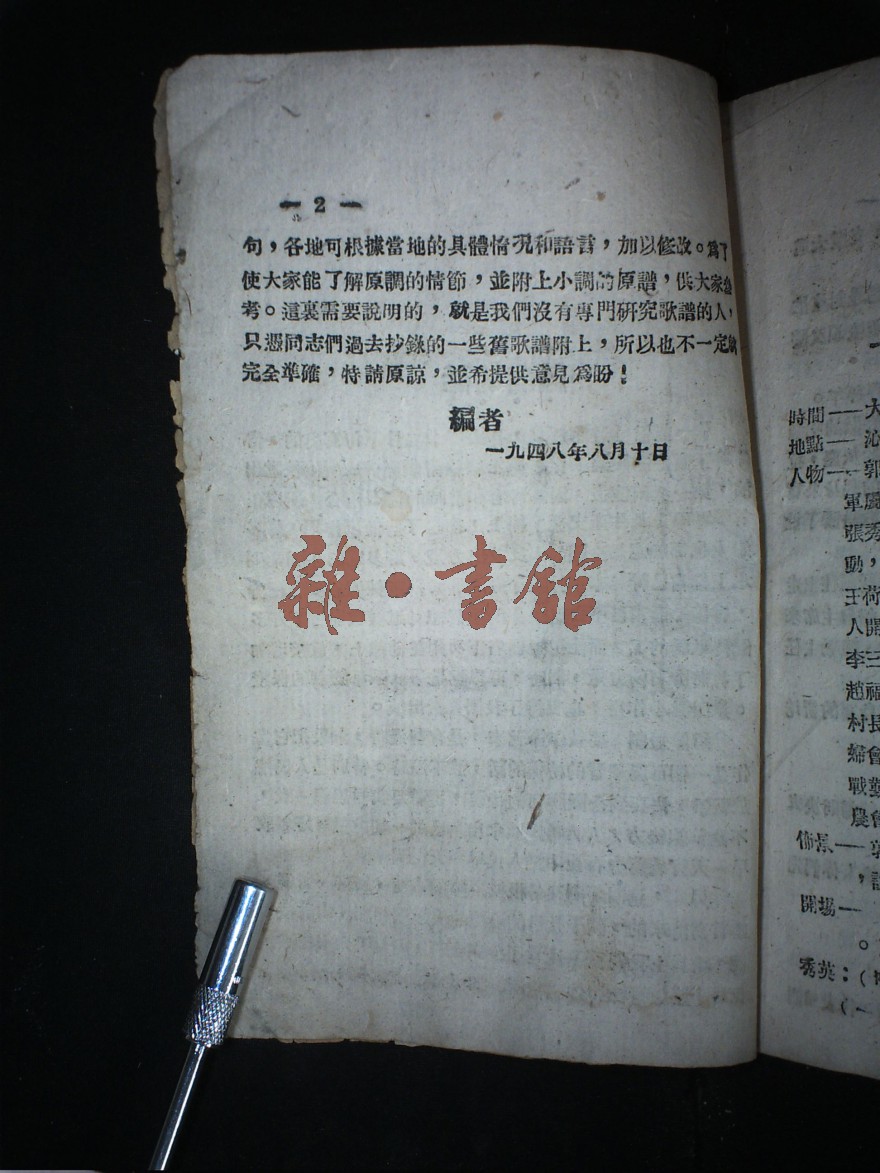 — 2 —
句，各地可根據當地的具體情况和語言，加以修改。爲了
使大家能了解原調的情節，並附上小調的原譜，供大家叅
考。這裏需要説明的，就是我們沒有專門研究歌譜的人，
只憑同志們過去抄錄的一些舊歌譜附上，所以也不一定
完全準確，特請原諒，並希提供意見爲盼！
編者
一九四八年八月十日
雜·書館
時間——大
地點——沁
人物——郭
軍屬
張秀
動，
王荷
人開
李三
趙福
村長
婦會
農會
佈景——郭
開場——
秀英：（
（一